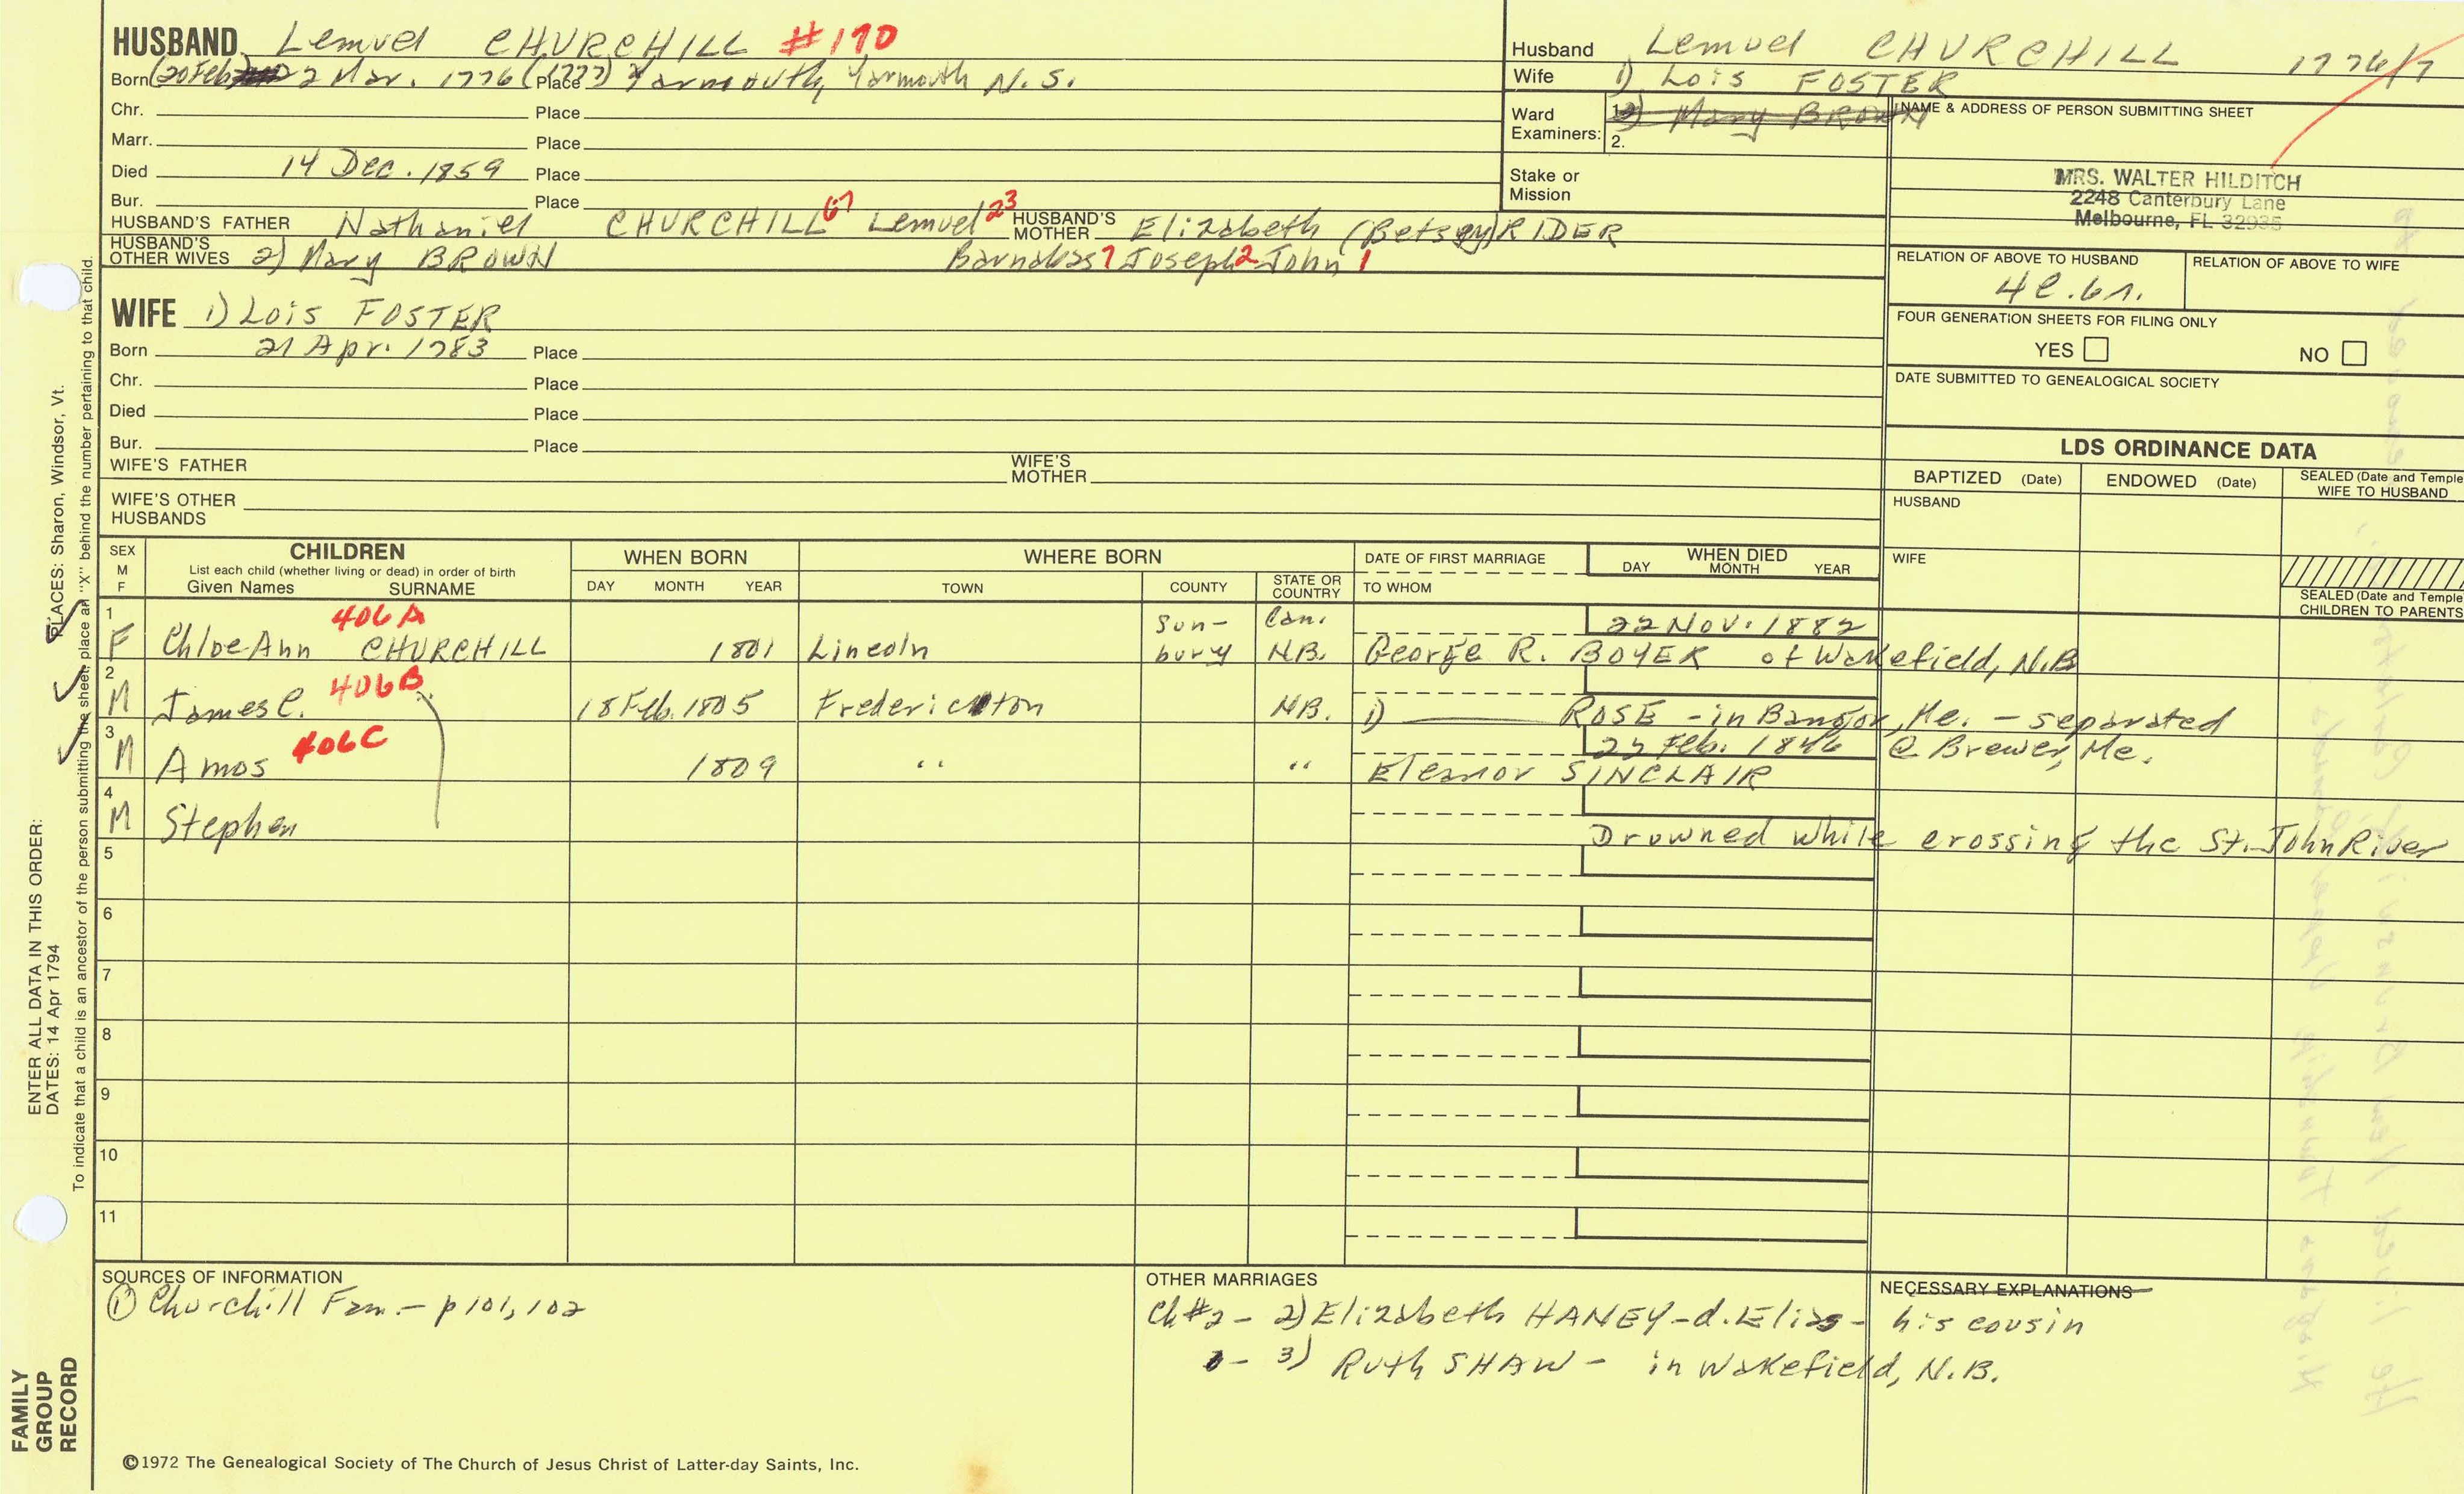 HUSBAND Lemuel CHURCHILL #190
Born (20 Feb) 2 Mar. 1776 (1777) Place Yarmouth, Yarmouth N.S.
Chr. Place
Marr. Place
Died 14 Dec. 1859 Place
Bur. Place
HUSBAND'S FATHER Nathaniel CHURCHILL 67 Lemuel 23 HUSBAND'S MOTHER Elizabeth (Betsey) RIDER
HUSBAND'S OTHER WIVES 2) Mary BROWN Barnabas 7 Joseph 2 John 1
Husband Lemuel CHURCHILL 1776/7
Wife 1) Lois FOSTER
Ward Examiners: 1. 2) Mary BROWN
2.
Stake or Mission
NAME & ADDRESS OF PERSON SUBMITTING SHEET
MRS. WALTER HILDITCH
2248 Canterbury Lane
Melbourne, FL 32935
RELATION OF ABOVE TO HUSBAND RELATION OF ABOVE TO WIFE
FOUR GENERATION SHEETS FOR FILING ONLY
YES NO
DATE SUBMITTED TO GENEALOGICAL SOCIETY
WIFE 1) Lois FOSTER
Born 21 Apr. 1783 Place
Chr. Place
Died Place
Bur. Place
WIFE'S FATHER WIFE'S MOTHER
WIFE'S OTHER HUSBANDS
LDS ORDINANCE DATA
BAPTIZED (Date) ENDOWED (Date) SEALED (Date and Temple) WIFE TO HUSBAND
HUSBAND
WIFE
SEALED (Date and Temple) CHILDREN TO PARENTS
SEX M F
CHILDREN
List each child (whether living or dead) in order of birth
Given Names SURNAME
WHEN BORN
DAY MONTH YEAR
WHERE BORN
TOWN COUNTY STATE OR COUNTRY
DATE OF FIRST MARRIAGE
TO WHOM
WHEN DIED
DAY MONTH YEAR
1 F Chloe Ann CHURCHILL 406A 1801 Lincoln Sunbury Can. N.B. 22 Nov. 1882
George R. BOYER of Wakefield, N.B
2 M James C. 406B 18 Feb. 1805 Fredericton N.B. 1) ROSE - in Bangor, Me. - separated
3 M Amos 406C 1809 " " 25 Feb. 1846 @ Brewer, Me.
Eleanor SINCLAIR
4 M Stephen Drowned while crossing the St. John River
5
6
7
8
9
10
11
SOURCES OF INFORMATION
① Churchill Fam. - p 101, 102
OTHER MARRIAGES
Ch #2 - 2) Elizabeth HANEY - d. Elias - his cousin
- 3) Ruth SHAW - in Wakefield, N.B.
NECESSARY EXPLANATIONS
©1972 The Genealogical Society of The Church of Jesus Christ of Latter-day Saints, Inc.
FAMILY GROUP RECORD
ENTER ALL DATA IN THIS ORDER:
DATES: 14 Apr 1794
PLACES: Sharon, Windsor, Vt.
To indicate that a child is an ancestor of the person submitting the sheet, place an "X" behind the number pertaining to that child.